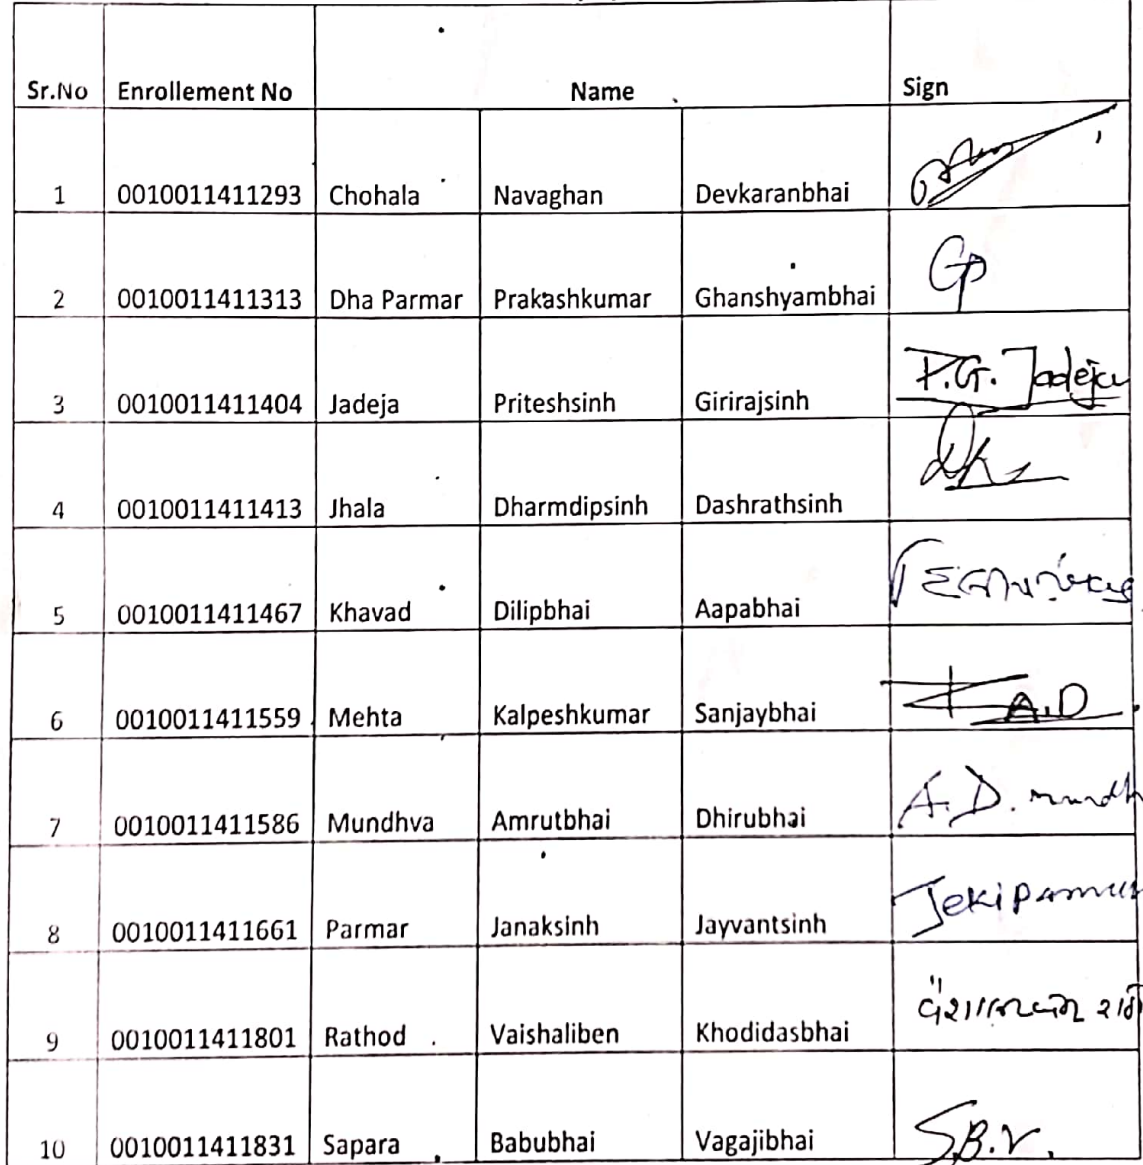 Sr.No Enrollement No Name Sign
1 0010011411293 Chohala Navaghan Devkaranbhai
2 0010011411313 Dha Parmar Prakashkumar Ghanshyambhai GP
3 0010011411404 Jadeja Priteshsinh Girirajsinh P.G. Jadeja
4 0010011411413 Jhala Dharmdipsinh Dashrathsinh
5 0010011411467 Khavad Dilipbhai Aapabhai
6 0010011411559 Mehta Kalpeshkumar Sanjaybhai A.D
7 0010011411586 Mundhva Amrutbhai Dhirubhai A.D. mundh
8 0010011411661 Parmar Janaksinh Jayvantsinh Jeki
9 0010011411801 Rathod Vaishaliben Khodidasbhai
10 0010011411831 Sapara Babubhai Vagajibhai S.B.V.